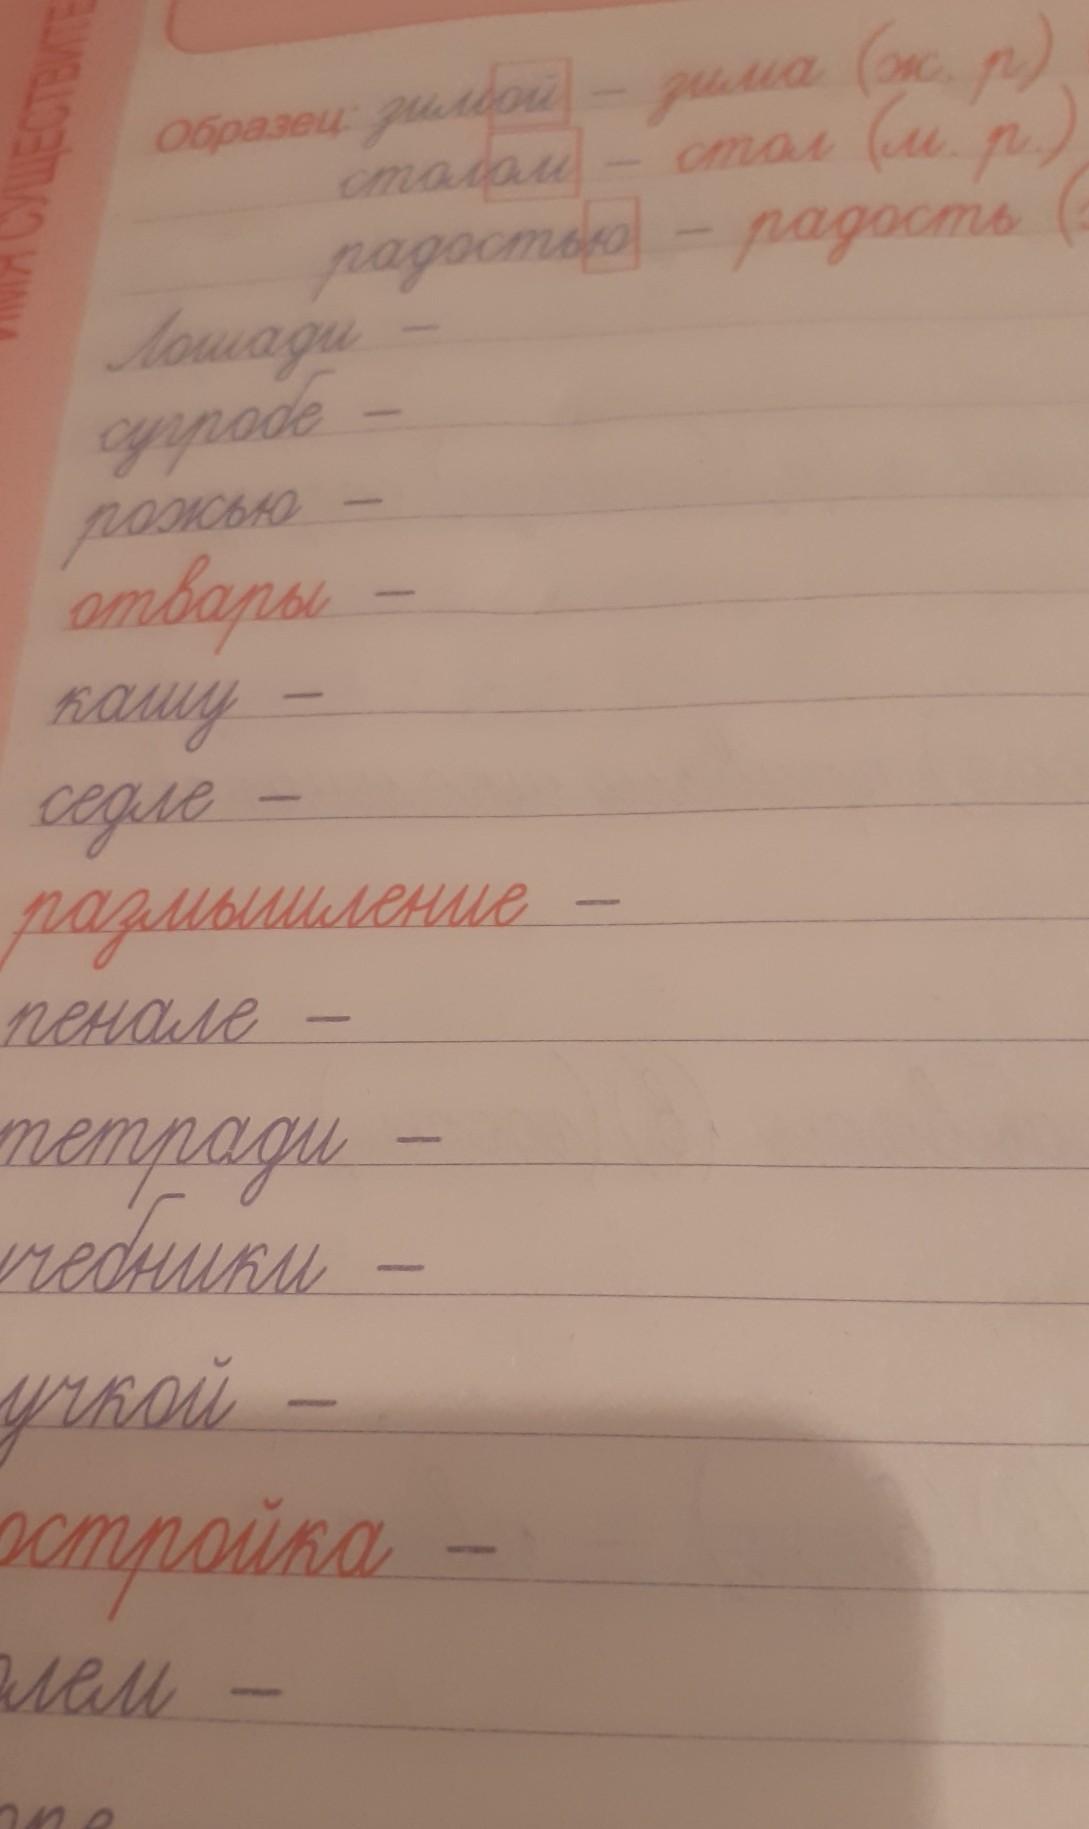 ИМЯ СУЩЕСТВИТЕ
Образец: зимой – зима (ж. р.)
столом – стол (м. р.)
радостью – радость (
Лошади –
сугробе –
рожью –
отвары –
кашу –
седле –
размышление –
пенале –
тетради –
учебники –
учкой –
остройка –
лем –